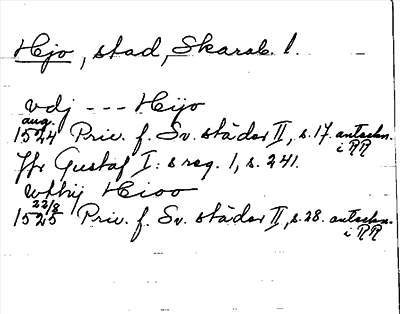 Hjo, stad, Skarab. l.
vdj --- Hijo
aug.
1524 Priv. f. Sv. städer II, s. 17. anteckn.
i RR
Jfr Gustaf I:s reg. 1, s. 241.
Hioo
22/8
1525 Priv. f. Sv. städer II, s. 28. anteckn.
i RR